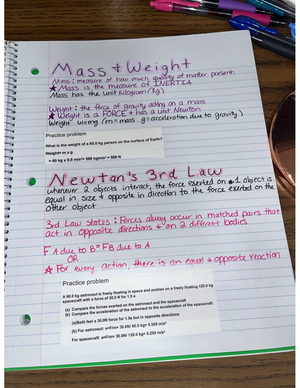 Mass + Weight
Mass: measure of how much quantity of matter present.
★ Mass is the measure of INERTIA
Mass has the unit Kilogram (kg).
Weight: the force of gravity acting on a mass
★ Weight is a FORCE + has a unit Newton
Weight: w=mg (m=mass g=acceleration due to gravity)
Practice problem
What is the weight of a 60.0 kg person on the surface of Earth?
Weight= m x g
= 60 kg x 9.8 m/s²= 588 kgm/s² = 588 N
Newton's 3rd Law
Whenever 2 objects interact, the force exerted on object is
equal in size + opposite in direction to the force exerted on the
other object
3rd Law states: Forces always occur in matched pairs that
act in opposite directions + on 2 different bodies
F A due to B = FB due to A
OR
★ For every action, there is an equal + opposite reaction
Practice problem
A 60.0 kg astronaut is freely floating in space and pushes on a freely floating 120.0 kg
spacecraft with a force of 30.0 N for 1.5 s
(a) Compare the forces exerted on the astronaut and the spacecraft
(b) Compare the acceleration of the astronaut to the acceleration of the spacecraft.
(a)Both feel a 30.0N force for 1.5s but in opposite directions
(b) For astronaut: a=F/m= 30.0N/ 60.0 kg= 0.500 m/s²
For spacecraft: a=F/m= 30.0N/ 120.0 kg= 0.250 m/s²